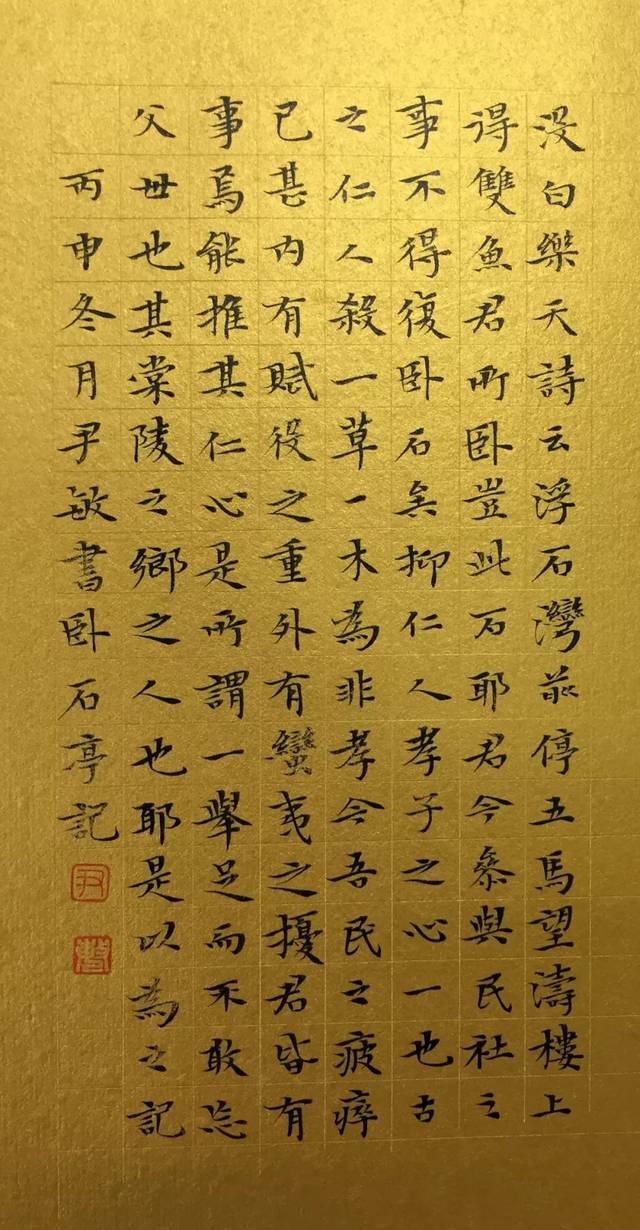 没白樂天詩云浮石灣前停五馬望濤樓上
得雙魚君所卧豈此石耶君今參與民社之
事不得復卧石矣抑仁人孝子之心一也古
之仁人殺一草一木為非孝今吾民之疲瘁
已甚内有賦役之重外有蠻夷之擾君皆有
事焉能推其仁心是所謂一舉足而不敢忘
父母也其棠陵之鄉之人也耶是以為之記
丙申冬月尹敏書卧石亭記
尹
敏